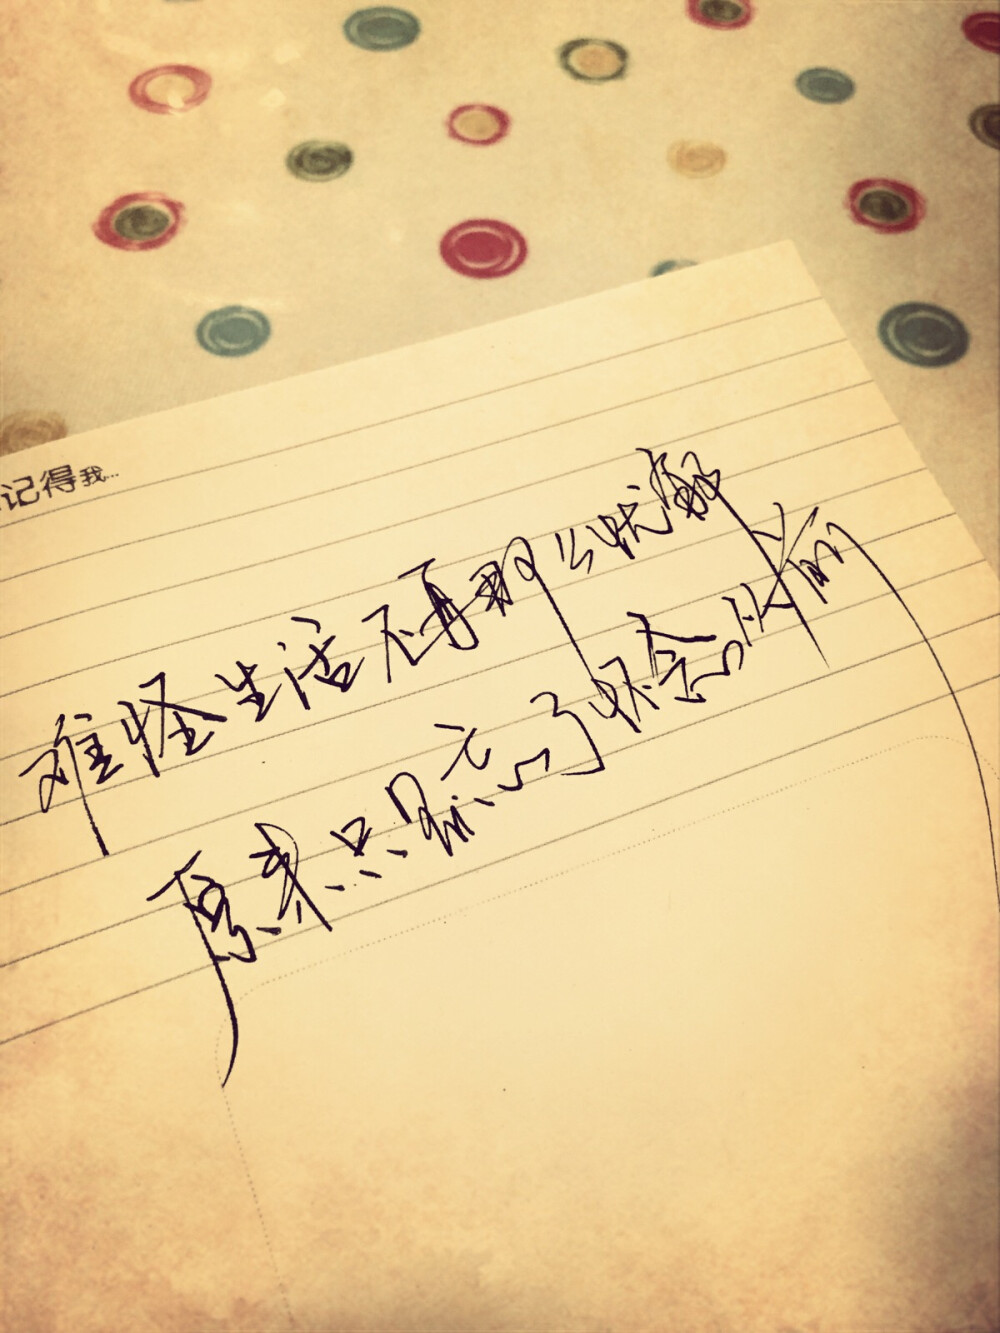 记得我...
难怪生活不再那么忧郁
原来只是忘了怀念从前